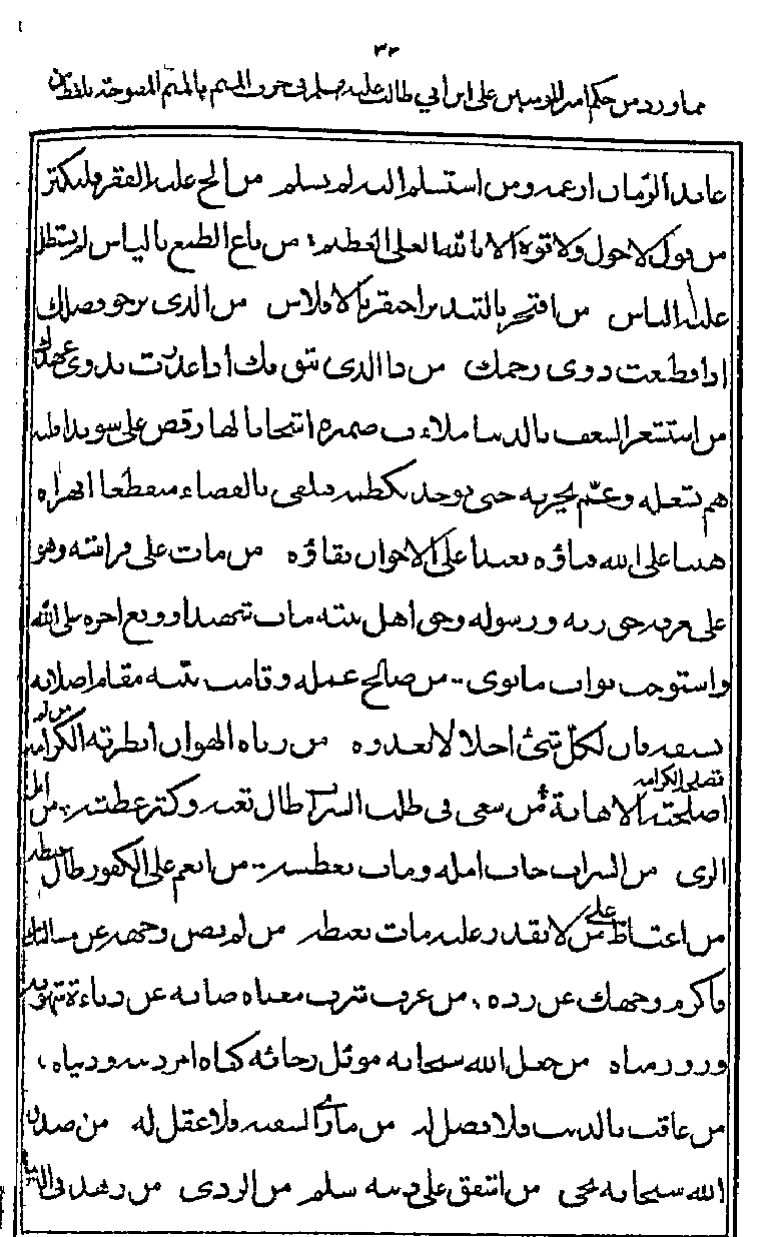 ٣٢
مما ورد من حكم امير المؤمنين علي ابن ابي طالب عليه السلام في حرف الميم بالميم المفتوحة بلفظ من
عاند الزمان ارغمه ومن استسلم اليه لم يسلم من الح عليه الفقر فليكثر
من قول لا حول ولا قوة الا بالله العلي العظيم من باع الطمع بالياس لم يستطل
عليه الناس من افتخر بالتبذير احتقر بالافلاس من الذي يرجو فضلك
اذا قطعت ذوي رحمك من ذا الذي يثق بك اذا غدرت بذوي عهدك
من استشعر الشعف بالدنيا ملاءت ضميره اشجانا لها رقص على سويداء قلبه
هم يشغله وغم يحزنه حتى يوخذ بكظمه فيلقى بالفضاء منقطعا ابهراه
هينا على الله فناؤه بعيدا على الاخوان بقاؤه من مات على فراشه وهو
على معرفه حق ربه ورسوله وحق اهل بيته مات شهيدا ووقع اجره على الله
واستوجب ثواب ما نوى من صالح عمله وقامت نيته مقام اصلاته
سيفه فان لكل شئ اجلا لا يعدوه من رباه الهوان ابطرته الكرامه من لم
تصلحه الكرامه
اصلحته الاهانة من سعى في طلب السراب طال تعبه وكثر عطشه من امل
الري من السراب خاب امله ومات بعطشه من انعم على الكفور طال غيظه
من اغتاظ على من لا يقدر عليه مات بغيظه من لم يصن وجهه عن مسالتك
فاكرم وجهك عن رده من عرف شرف معناه صانه عن دناءة شهوته
وزور مناه من جعل الله سبحانه موئل رجائه كفاه امر دينه ودنياه
من عاقب بالذنب فلا فضل له من مارا السفيه فلا عقل له من صدق
الله سبحانه نجى من اشفق على دينه سلم من الردى من زهد في الدنيا